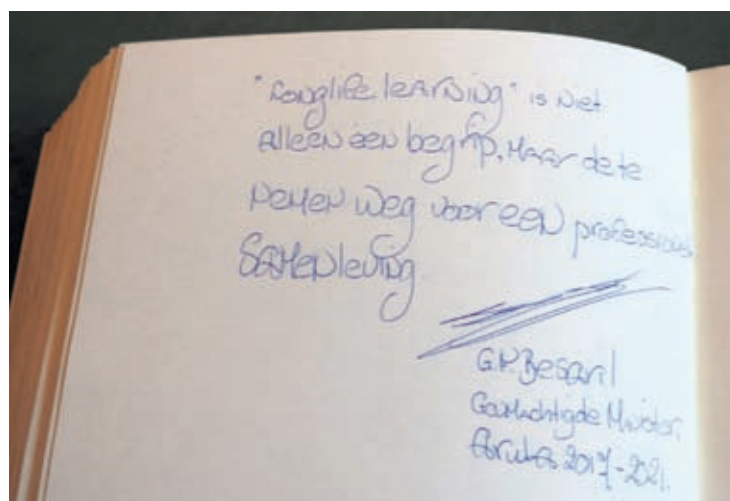 "Longlife learning" is niet
alleen een begrip, maar de te
nemen weg voor een professionele
samenleving.
G.P. Besaril
Gevolmachtigde Minister,
Aruba 2017-2021.